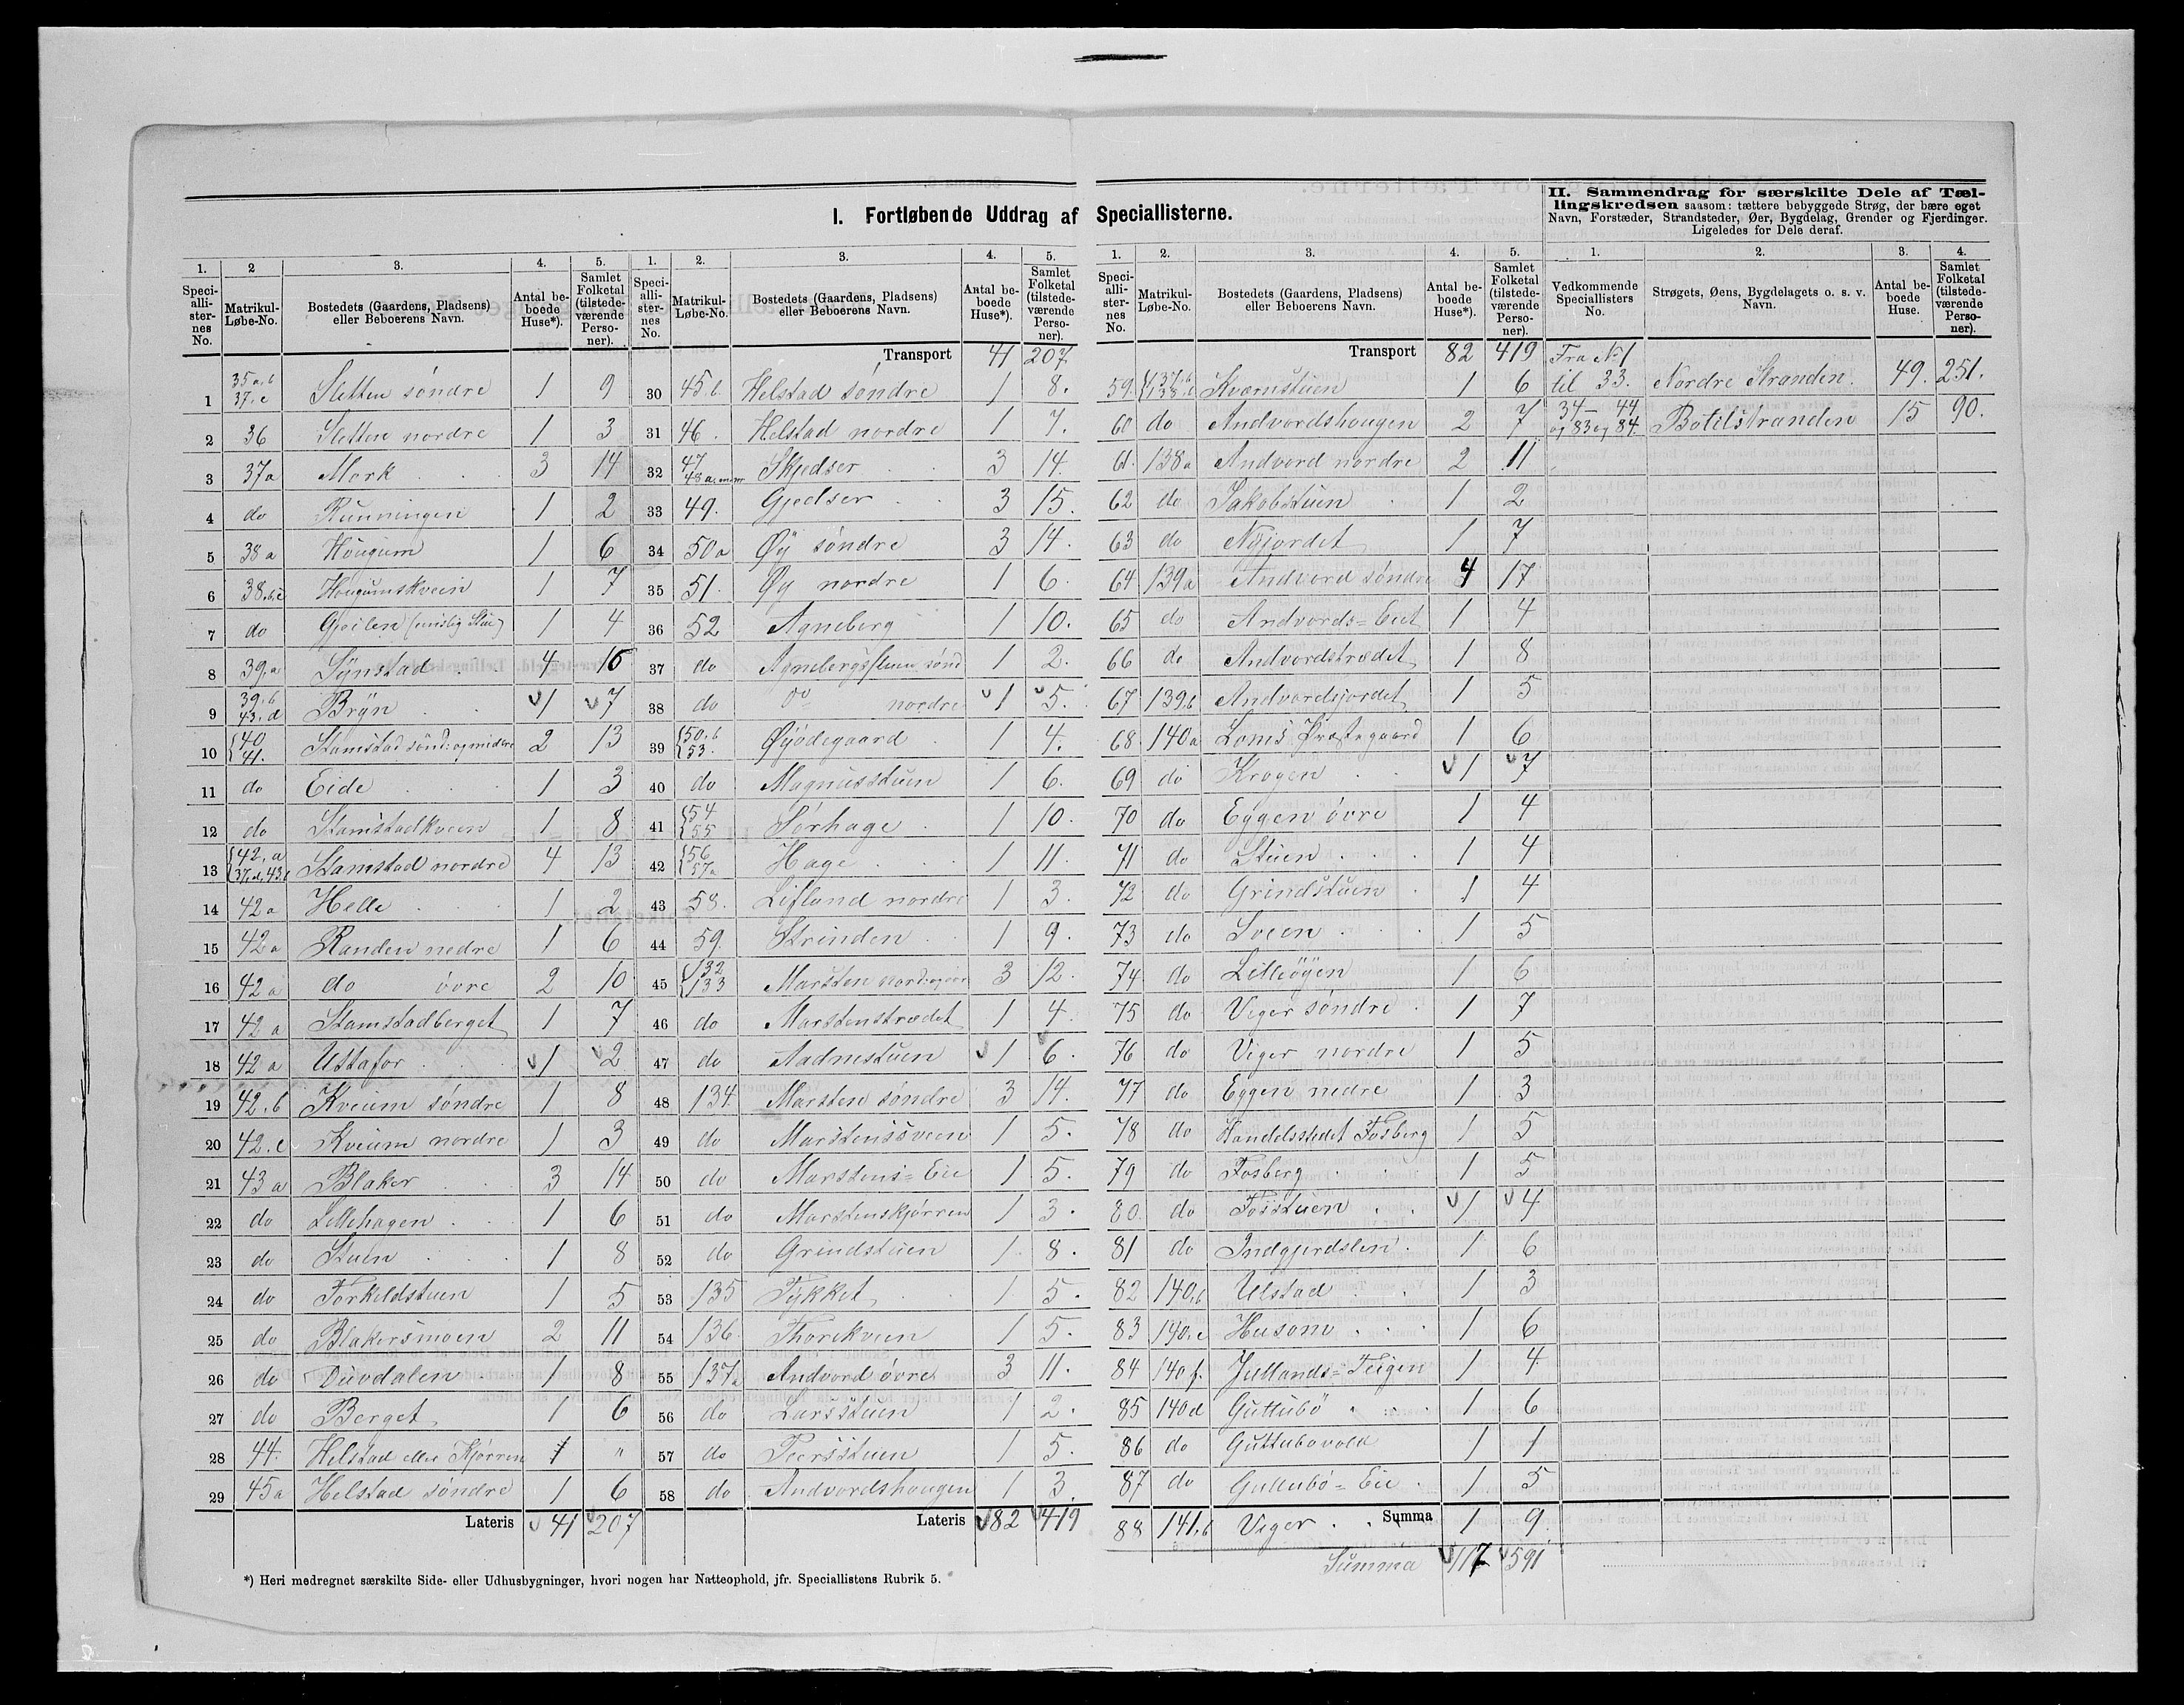 I. Fortløbende Uddrag af Speciallisterne.
II. Sammendrag for særskilte Dele af Tæl-
lingskredsen saasom: tættere bebyggede Strøg, der bære eget
Navn, Forstæder, Strandsteder, Øer, Bygdelag, Grender og Fjerdinger.
Ligeledes for Dele deraf.
1. 2 3. 4. 5.
Speci-alli-ster-nes No. Matrikul-Løbe-No. Bostedets (Gaardens, Pladsens) eller Beboerens Navn. Antal be-boede Huse*). Samlet Folketal (tilstede-værende Perso-ner).
1 35a,b 37,c Sletten søndre 1 9
2 36 Sletten nordre 1 3
3 37a Mork 3 14
4 do Runningen 1 2
5 38a Hougum 1 6
6 38,b,c Hougumskvein 1 7
7 do Gjeilen 1 4
8 39,a Synstad 4 16
9 39,b 43,d Bryn 1 7
10 40 41. Stamstad sønd: og midtre 2 13
11 do Eide 1 3
12 do Stamstadkvein 1 8
13 42,a 37,d,43,b Stamstad nordre 4 13
14 42a Helle 1 2
15 42a Randen nedre 1 6
16 42a do øvre 2 10
17 42a Stamstadberget 1 7
18 42a Ustafor 1 2
19 42,b Kveum søndre 1 8
20 42,c Kveum nordre 1 3
21 43a Blaker 3 14
22 do Lillehagen 1 6
23 do Stuen 1 8
24 do Torkeldstuen 1 5
25 do Blakersmoen 2 11
26 do Duvdalen 1 8
27 do Berget 1 6
28 44. Helstad eller Kjørren 1 "
29 45a Helstad søndre 1 6
Lateris 41 207
1. 2. 3. 4. 5.
Speci-alli-ster-nes No. Matrikul-Løbe-No. Bostedets (Gaardens, Pladsens) eller Beboerens Navn. Antal be-boede Huse*). Samlet Folketal (tilstede-værende Perso-ner).
Transport 41 207
30 45,b. Helstad søndre 1 8.
31 46. Helstad nordre 1 7.
32 47 48a Skjedser 3 14.
33 49. Gjedser 3 15.
34 50a Øy søndre 3 14.
35 51. Øy nordre 1 6.
36 52 Agneberg 1 10.
37 do Agnebergsstuen sønd 1 2.
38 do do nordre 1 5.
39 50,b 53. Øyødegaard 1 4.
40 do Magnusstuen 1 6.
41 54 55 Sørhage 1 10.
42 56 57a Hage 1 11.
43 58. Lifland nordre 1 3.
44 59. Strinden 1 9.
45 132 133 Marsten 3 12.
46 do Marstenstrædet 1 4.
47 do Aadnstuen 1 6.
48 134. Marsten søndre 3 14.
49 do Marstenssveen 1 5.
50 do Marstens-Eie 1 5.
51 do Marstenskjørren 1 3.
52 do Grindstuen 1 8.
53 135 Tykket 1 5.
54 136 Thorekvien 1 5.
55 137a Andvord øvre 3 11.
56 do Larsstuen 1 2.
57 do Peersstuen 1 5.
58 do Andvordshougen 1 3.
Lateris 82 419
1. 2. 3. 4. 5.
Speci-alli-ster-nes No. Matrikul-Løbe-No. Bostedets (Gaardens, Pladsens) eller Beboerens Navn. Antal be-boede Huse*). Samlet Folketal (tilstede-værende Perso-ner).
Transport 82 419
59. 137,b 138,b Kvernstuen 1 6
60 do Andvordshougen 2 7
61. 138a Andvord nordre 2 11
62 do Jakobstuen 1 2
63 do Nyjordet 1 7
64 139a Andvord søndre 4 17
65 do Andvords-Eiet 1 4
66 do Andvordstrædet 1 8
67 139,b Andvordsjordet 1 5
68 140a Loms Præstegaard 1 6
69 do Krogen 1 7
70 do Eggen øvre 1 4
71 do Stuen 1 4
72 do Grindstuen 1 4
73 do Sveen 1 5
74 do Lilleøyen 1 6
75 do Viger søndre 1 7
76 do Viger nordre 1 5
77 do Eggen nedre 1 3
78 do Handelsstedet Fosberg 1 5
79 do Fosberg 1 5
80. do Fosstuen 1 4
81 do Indgjerdslen 1 6
82 140,b Ulstad 1 3
83 140,c Husom 1 6
84 140f. Jutlands-Teigen 1 4
85 140d Guttubø 1 6
86 do Guttubovold 1 1
87 do Guttubø-Eie 1 5
88 141,b Viger Summa 1 9
Summa 117 591
1. 2. 3. 4.
Vedkommende Speciallisters No. Strøgets, Øens, Bygdelagets o. s. v. Navn. Antal be-boede Huse. Samlet Folketal (tilstede-værende Perso-ner).
Fra No 1
til 33. Nordre Stranden. 49. 251.
34 - 44
og 83 og 84. Botilstranden 15 90.
*) Heri medregnet særskilte Side- eller Udhusbygninger, hvori nogen har Natteophold, jfr. Speciallistens Rubrik 5.